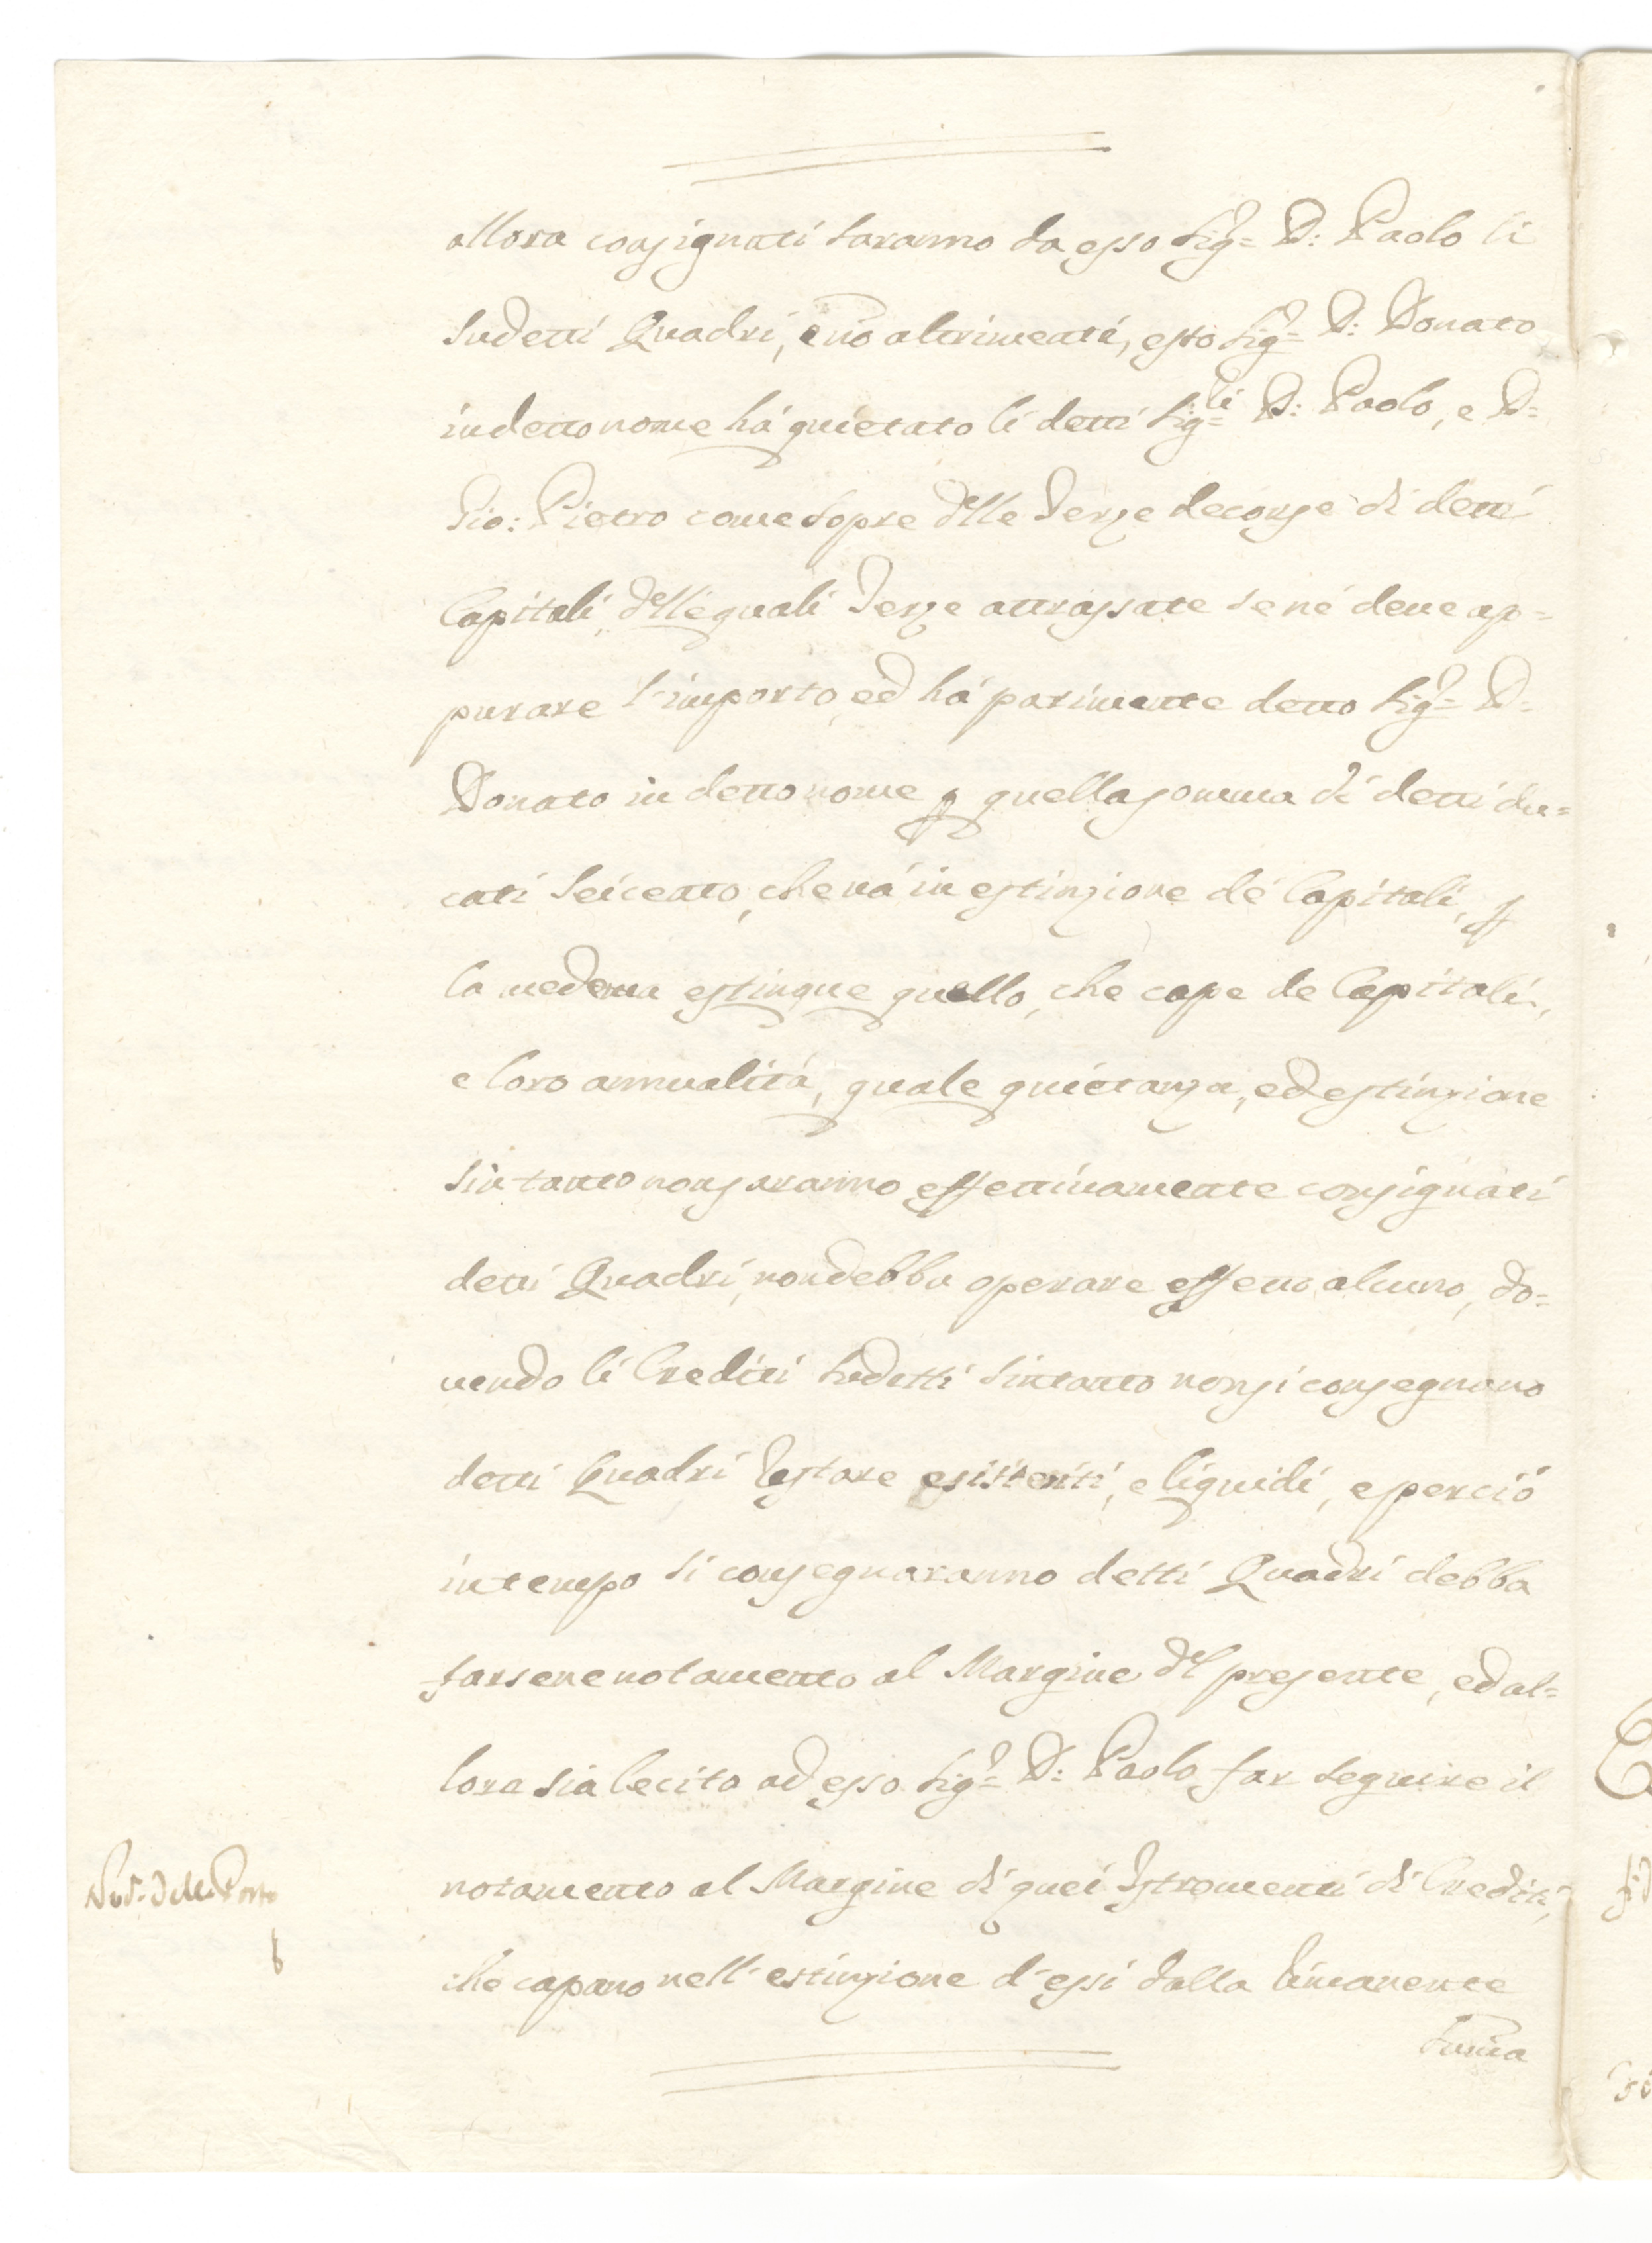 allora consignati saranno da esso Sig.r D: Paolo li
sudetti Quadri, e nõ altrimenti, esso Sig.r D: Donato
in detto nome há quietato li detti Sig.li D: Paolo, e D=
Gio: Pietro come sopra d'lle Terze decorse di detti
Capitali, d'lle quali Terze attrassate se né deve ap=
purare l'importo, ed há parimente detto Sig.r D=
Donato in detto nome ꝑ quella somma di detti du=
cati seicento, che vá in estinzione dé Capitali, ꝑ
la medema estingue quello, che cape de Capitali,
e loro annualitá, quale quietanza, ed estinzione
sin tanto non saranno effettivamente consignati
detti Quadri, non debba operare effetto alcuno, do=
vendo li Crediti sudetti sintanto non si consegnano
detti Quadri restare esistenti, e liquidi, e perció
in tempo si consegnaranno detti Quadri debba
farsene notamento al Margine d'l presente, ed al=
lora sia lecito ad esso Sig.r D: Paolo far seguire il
notamento al Margine di quei Istromenti di Crediti,
che capano nell'estinzione d'essi dalla rimanente
summa